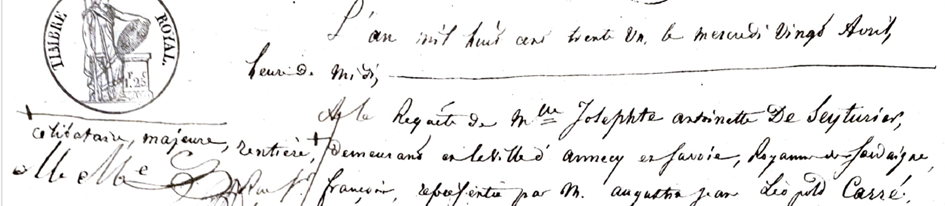 TIMBRE ROYAL.
1.25
L'an mil huit cent trente un, le mercredi vingt Avril,
heure de Midi,
A la Requête de Mlle Josephte antoinette De Seyturier,
+ célibataire, majeure, rentière,
+ demeurant en la Ville d'annecy en Savoie, Royaume de Sardaigne,
françois, représentée par M. augustin jean Léopold Carré,